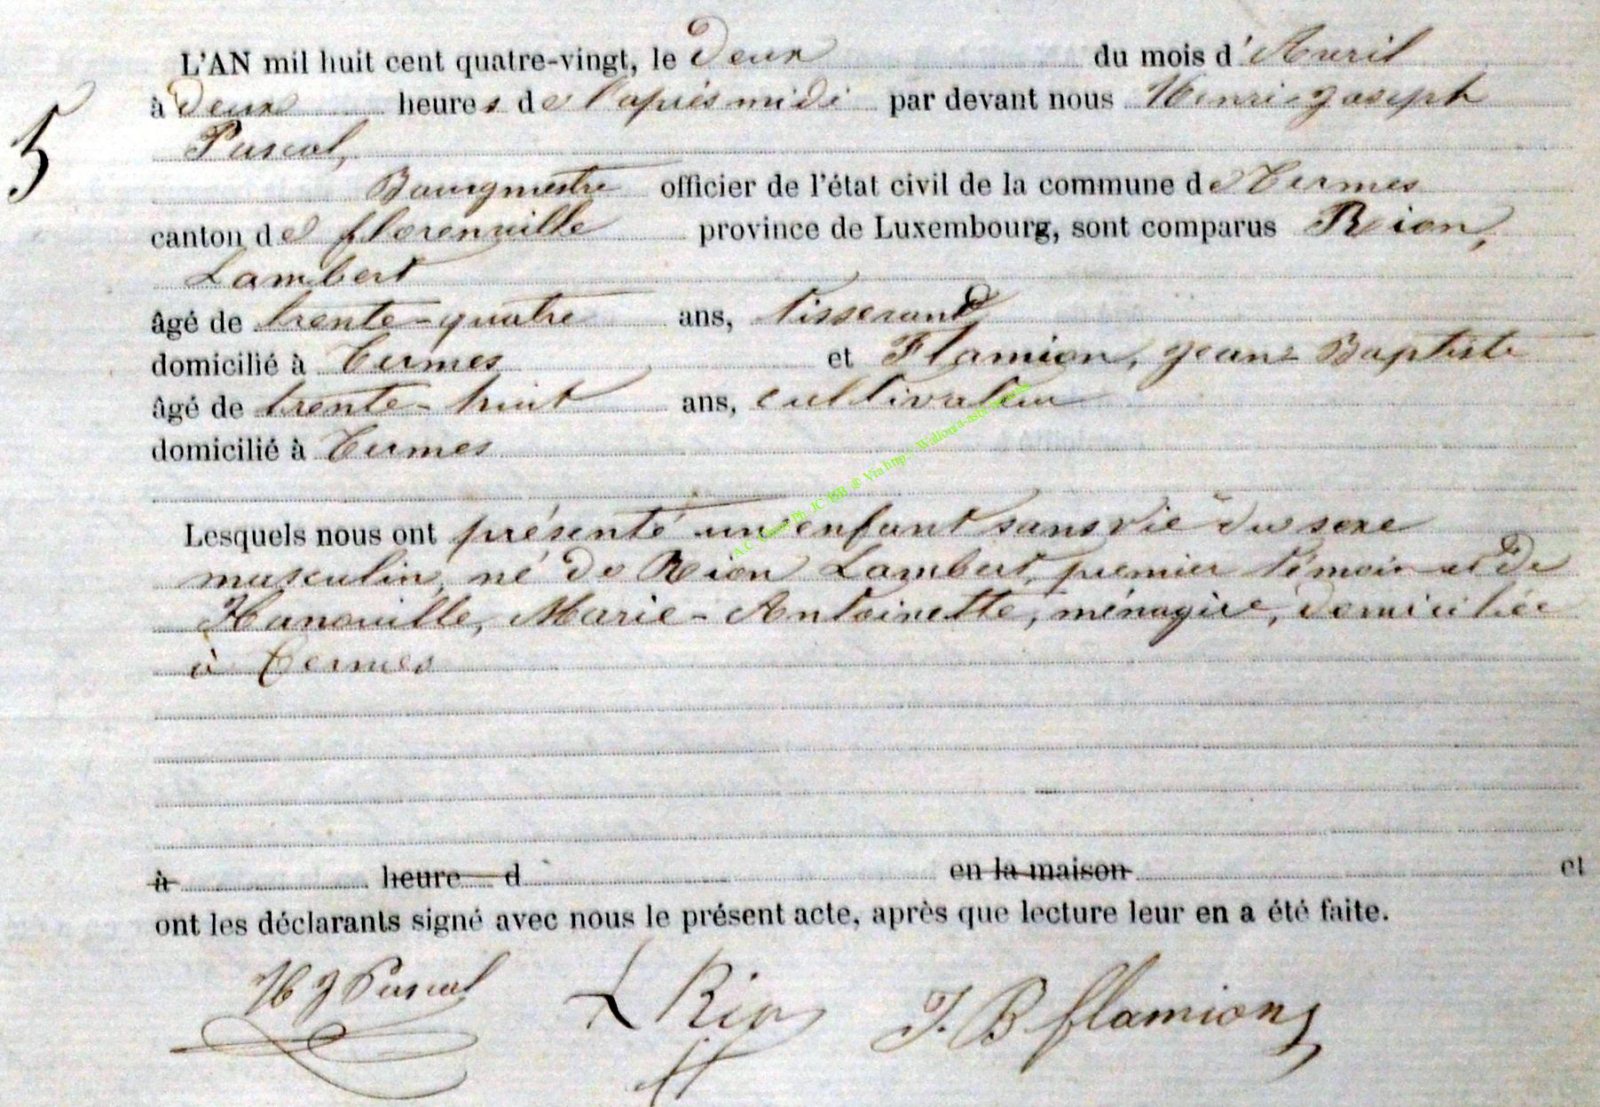 L'AN mil huit cent quatre-vingt, le deux du mois d'Avril
à deux heures de l'après midi par devant nous Henri-Joseph
5
Pascal,
Bourgmestre officier de l'état civil de la commune de Termes
canton de florenville province de Luxembourg, sont comparus Rion,
Lambert
âgé de trente-quatre ans, tisserand
domicilié à Termes et Flamion, Jean-Baptiste
âgé de trente-huit ans, cultivateur
domicilié à Termes
Lesquels nous ont présenté un enfant sans vie du sexe
masculin, né de Rion Lambert, premier témoin et de
Hanouille, Marie-Antoinette, ménagère, domiciliée
à Termes
à heure d en la maison et
ont les déclarants signé avec nous le présent acte, après que lecture leur en a été faite.
H J Pascal L Rion J. B flamion